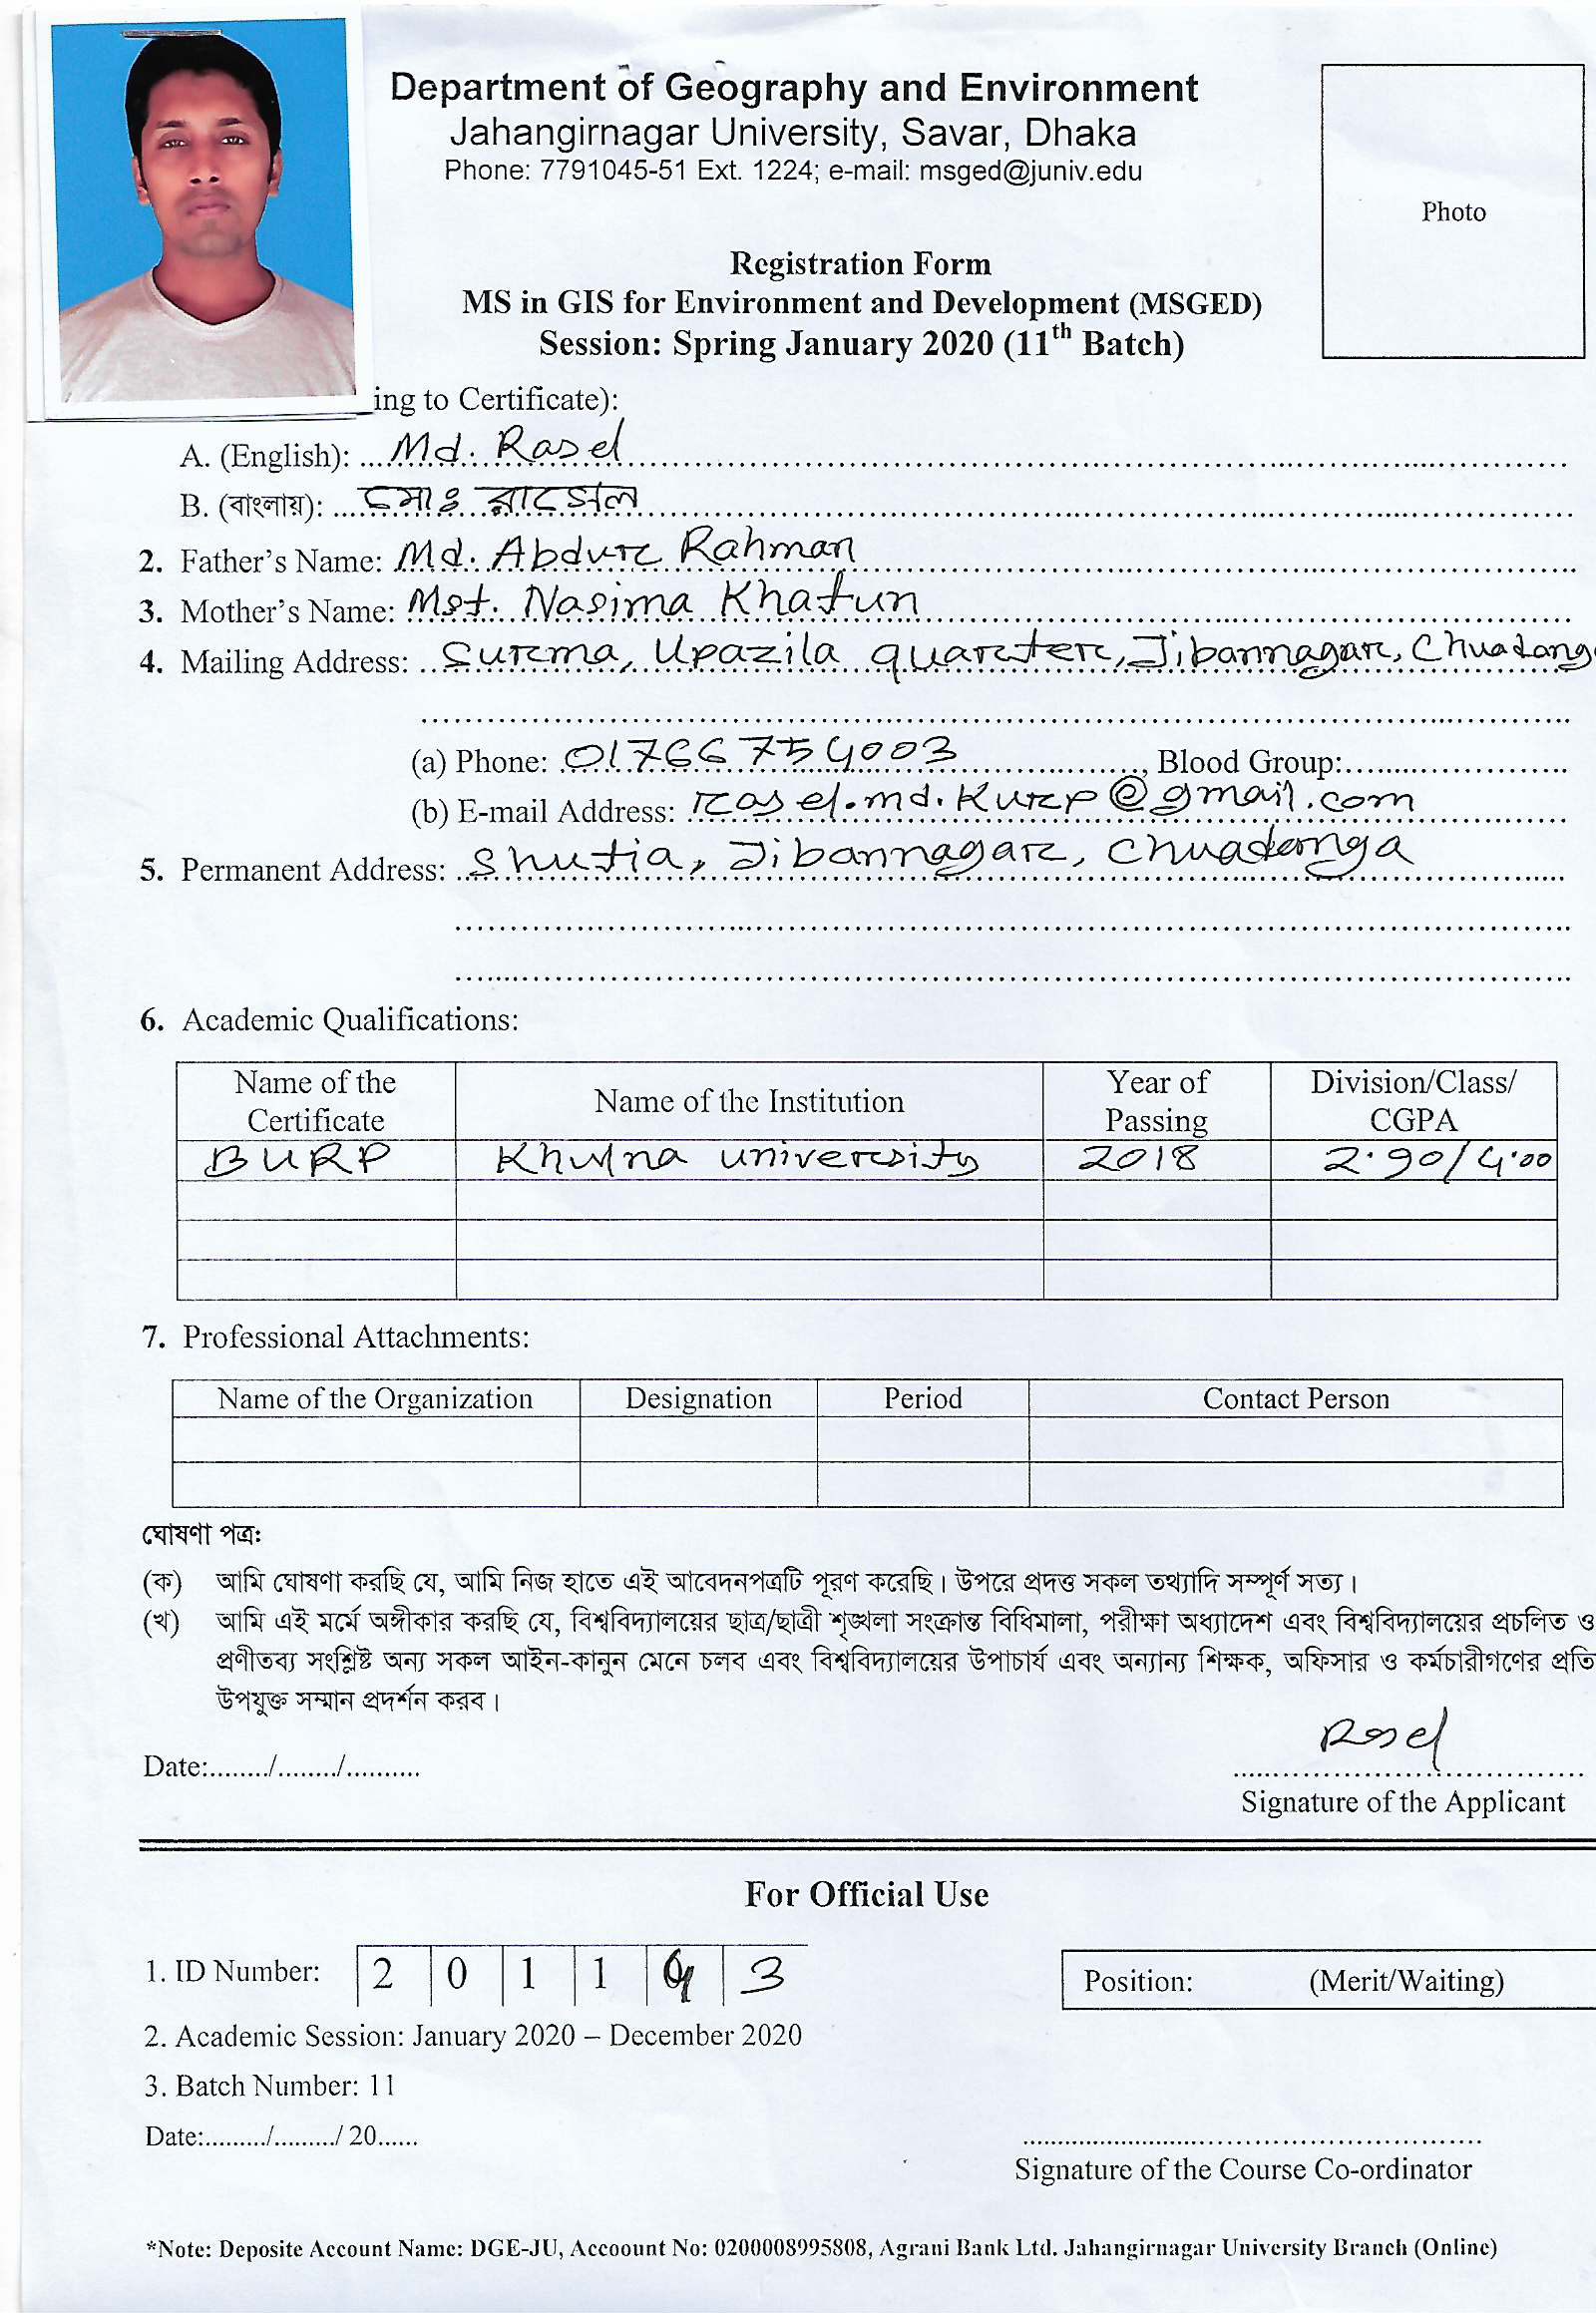 Department of Geography and Environment
Jahangirnagar University, Savar, Dhaka
Phone: 7791045-51 Ext. 1224; e-mail: msged@juniv.edu
Photo
Registration Form
MS in GIS for Environment and Development (MSGED)
Session: Spring January 2020 (11th Batch)
ing to Certificate):
A. (English): Md. Rasel
B. (বাংলায়): মোঃ রাসেল
2. Father's Name: Md. Abdur Rahman
3. Mother's Name: Mst. Nasima Khatun
4. Mailing Address: Surma, Upazila quarter, Jibannagar, Chuadang
(a) Phone: 01766754003, Blood Group:
(b) E-mail Address: rasel.md.kurp@gmail.com
5. Permanent Address: Shutia, Jibannagar, Chuadanga
6. Academic Qualifications:
Name of the Certificate Name of the Institution Year of Passing Division/Class/ CGPA
BURP Khulna university 2018 2.90/4.00
7. Professional Attachments:
Name of the Organization Designation Period Contact Person
ঘোষণা পত্রঃ
(ক) আমি ঘোষণা করছি যে, আমি নিজ হাতে এই আবেদনপত্রটি পূরণ করেছি। উপরে প্রদত্ত সকল তথ্যাদি সম্পূর্ণ সত্য।
(খ) আমি এই মর্মে অঙ্গীকার করছি যে, বিশ্ববিদ্যালয়ের ছাত্র/ছাত্রী শৃঙ্খলা সংক্রান্ত বিধিমালা, পরীক্ষা অধ্যাদেশ এবং বিশ্ববিদ্যালয়ের প্রচলিত ও
প্রণীতব্য সংশ্লিষ্ট অন্য সকল আইন-কানুন মেনে চলব এবং বিশ্ববিদ্যালয়ের উপাচার্য এবং অন্যান্য শিক্ষক, অফিসার ও কর্মচারীগণের প্রতি
উপযুক্ত সম্মান প্রদর্শন করব।
Rasel
Date:......../......../..........
Signature of the Applicant
For Official Use
1. ID Number: 2 0 1 1 3
Position: (Merit/Waiting)
2. Academic Session: January 2020 – December 2020
3. Batch Number: 11
Date:........./........./ 20......
Signature of the Course Co-ordinator
*Note: Deposite Account Name: DGE-JU, Accoount No: 0200008995808, Agrani Bank Ltd. Jahangirnagar University Branch (Online)